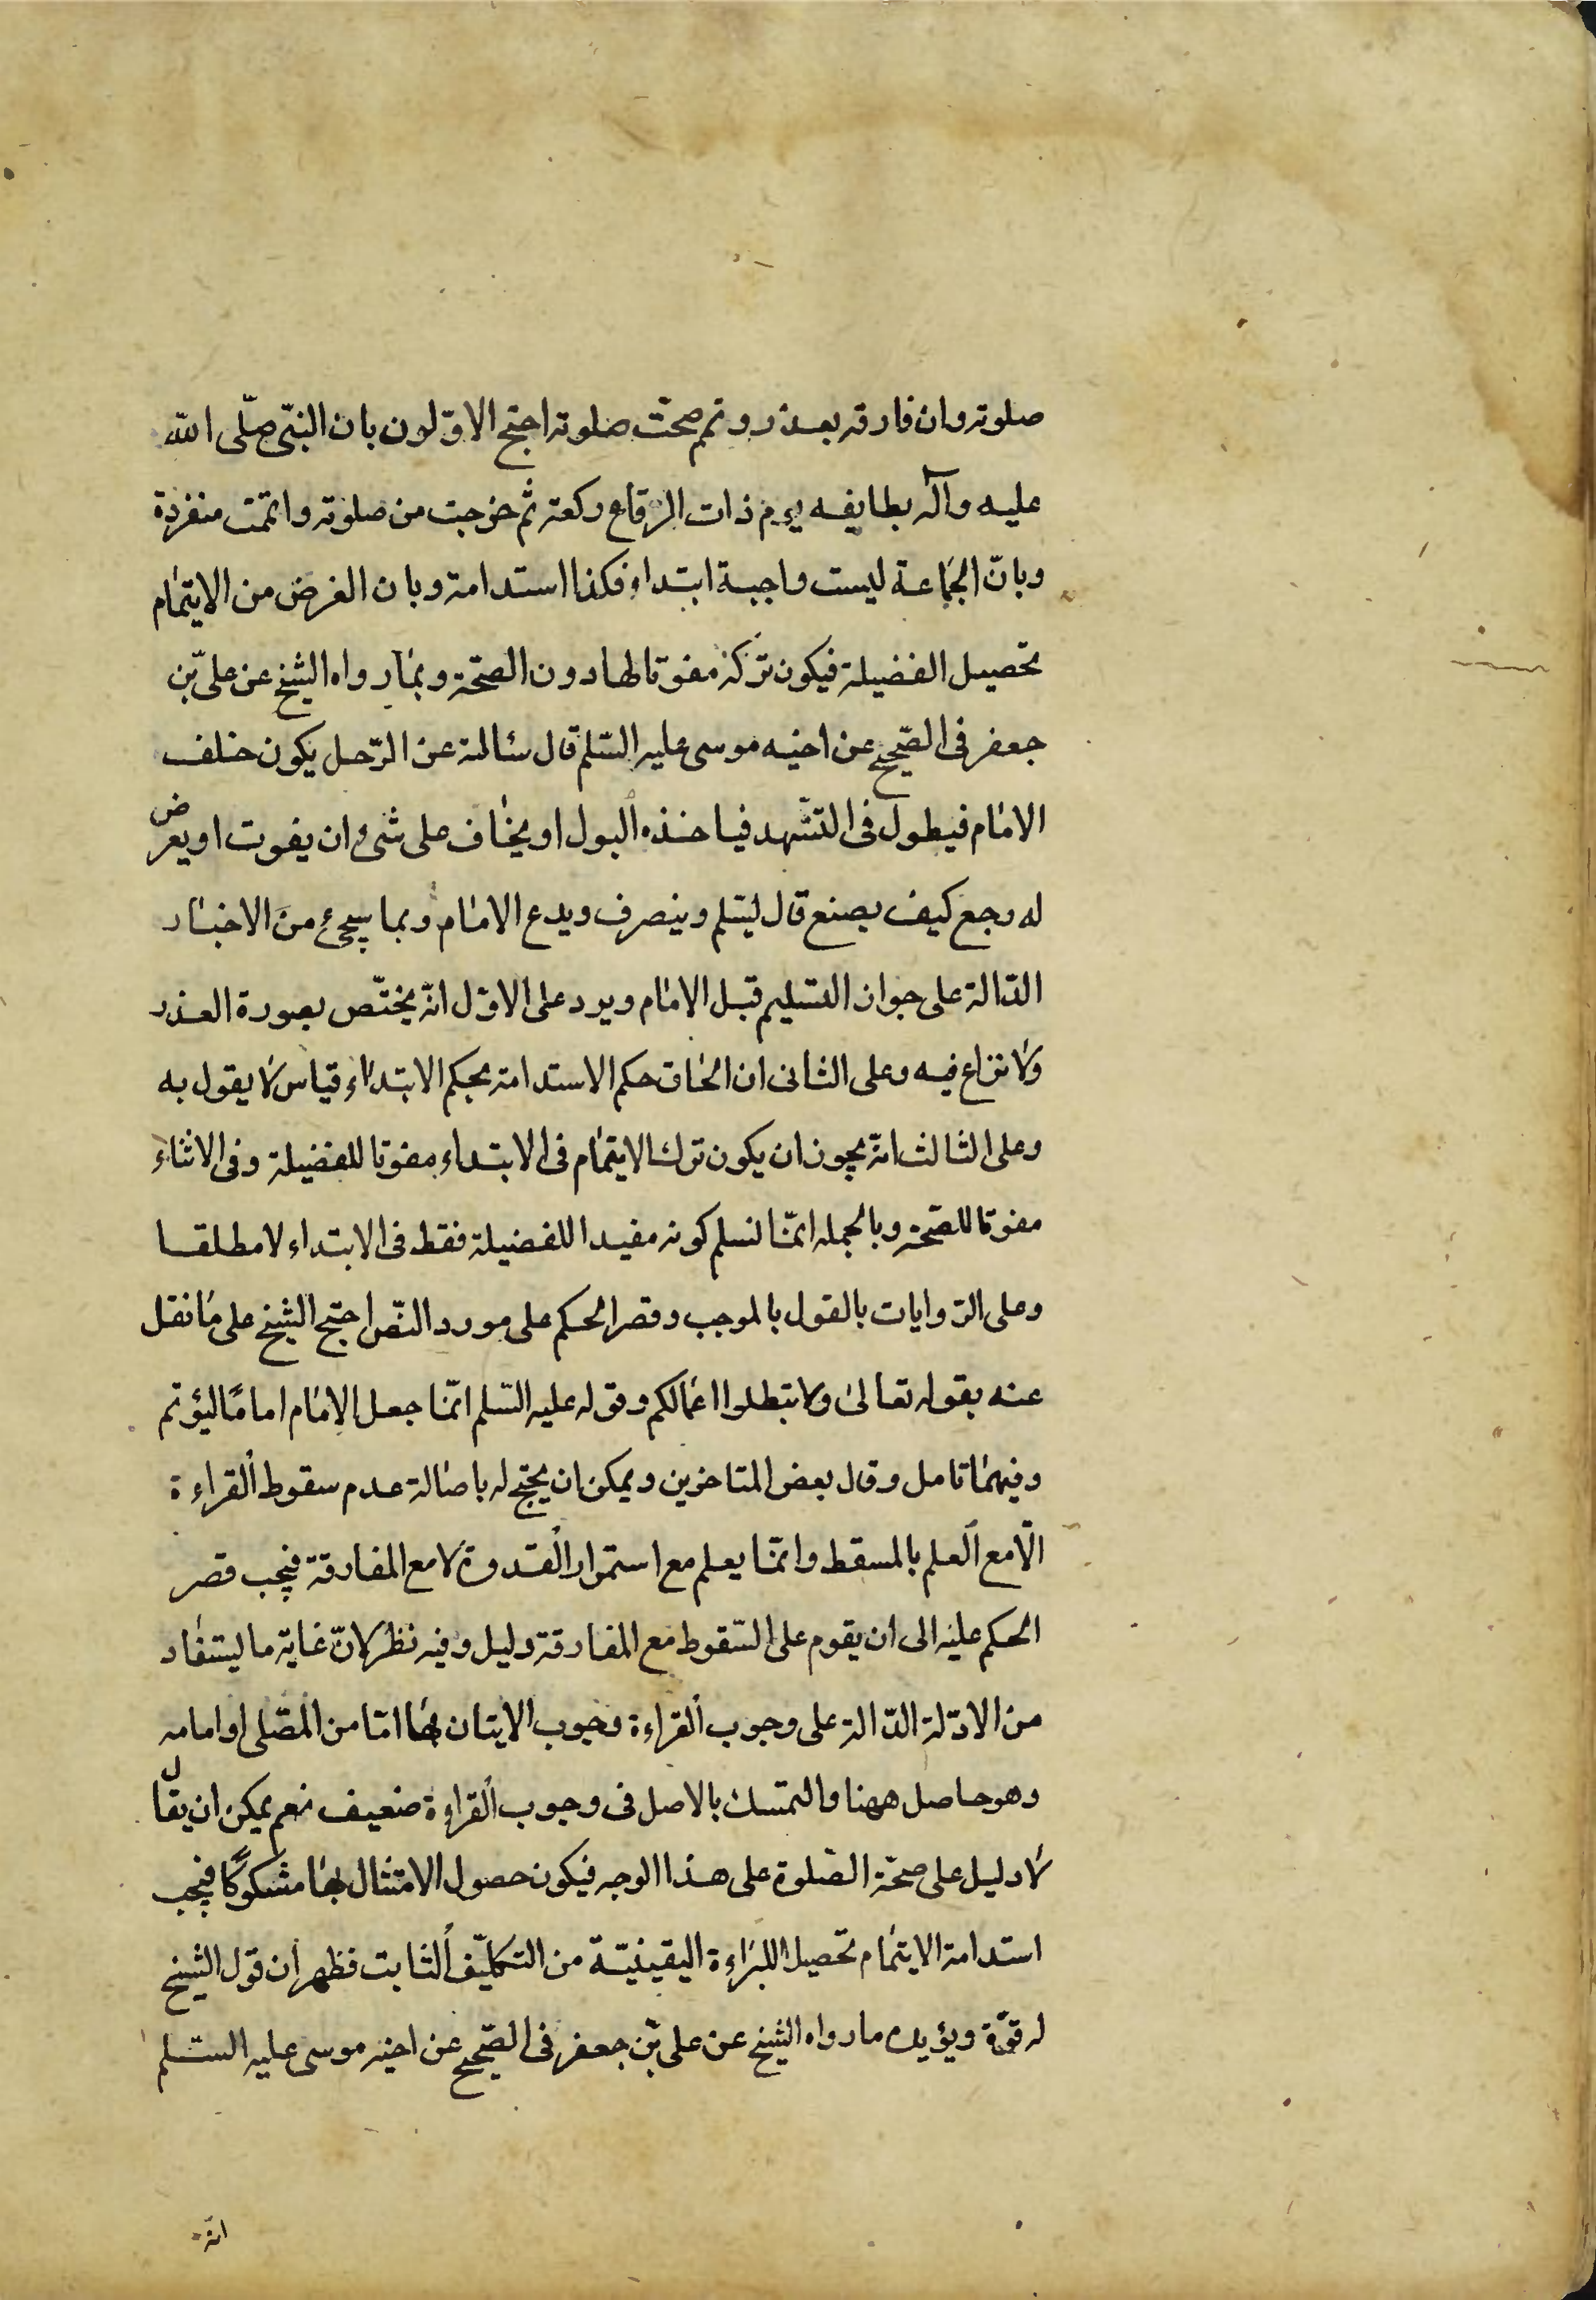 صلوته وان فارقه بعذر وتم صحت صلوته احتج الاوّلون بان النبّى صلّى الله
عليه وآله بطايفه يوم ذات الرقاع ركعة ثم خرجت من صلوته واتمت منفردة
وبانّ الجماعة ليست واجبة ابتداء فكذا استدامة وبان الغرض من الايتمام
تحصيل الفضيلة فيكون تركه مفوتا لها دون الصحّة وبما رواه الشيخ عن علىّ بن
جعفر فى الصّحيح عن اخيه موسى عليه السّلم قال سئالته عن الرّجل يكون خلف
الامام فيطول فى التشّهد فياخذه البول او يخاف على شىء ان يفوت او يعرض
له وجع كيف يصنع قال ليسّلم وينصرف ويدع الامام وبما سيجىء من الاخبار
الدّالة على جواز التسليم قبل الامام ويرد على الاوّل انّه يختّص بصورة العذر
ولا نزاع فيه وعلى الثانى ان الحاق حكم الاستدامة بحكم الابتداء قياس لا يقول به
وعلى الثالث انّه يجوز ان يكون ترك الايتمام فى الابتداء مفوتا للفضيلة وفى الاثناء
مفوتا للصّحة وبالجمله انمّا نسلم كونه مفيدا للفضيلة فقط فى الابتداء لا مطلقا
وعلى الرّوايات بالقول بالموجب وقصر الحكم على مورد النّص احتج الشيخ على ما نقل
عنه بقوله تعالى ولا تبطلوا اعمالكم وقوله عليه السّلم انمّا جعل الامام اماما ليؤتم
وفيهما تامل وقال بعض المتاخرين ويمكن ان يحتج له باصالة عدم سقوط القراءة
الّا مع العلم بالمسقط وانمّا يعلم مع استمرار القدوة لا مع المفارقة فيجب قصر
الحكم عليه الى ان يقوم على السّقوط مع المفارقة دليل وفيه نظر لانّ غاية ما ليستفاد
من الادّلة الدّالة على وجوب القراءة وجوب الايتان بها امّا من المصّلى او امامه
وهو حاصل ههنا والتمسك بالاصل فى وجوب القراءة ضعيف نعم يمكن ان يقال
لا دليل على صحّة الصّلوة على هذا الوجه فيكون حصول الامتثال بها مشكوكًا فيجب
استدامة الايتمام تحصيلا للبراءة اليقينيّة من التكليف الثابت فظهر ان قول الشيخ
له قوّة ويؤيده ما رواه الشيخ عن علىّ بن جعفر فى الصّحيح عن اخيه موسى عليه السّلم
انّه